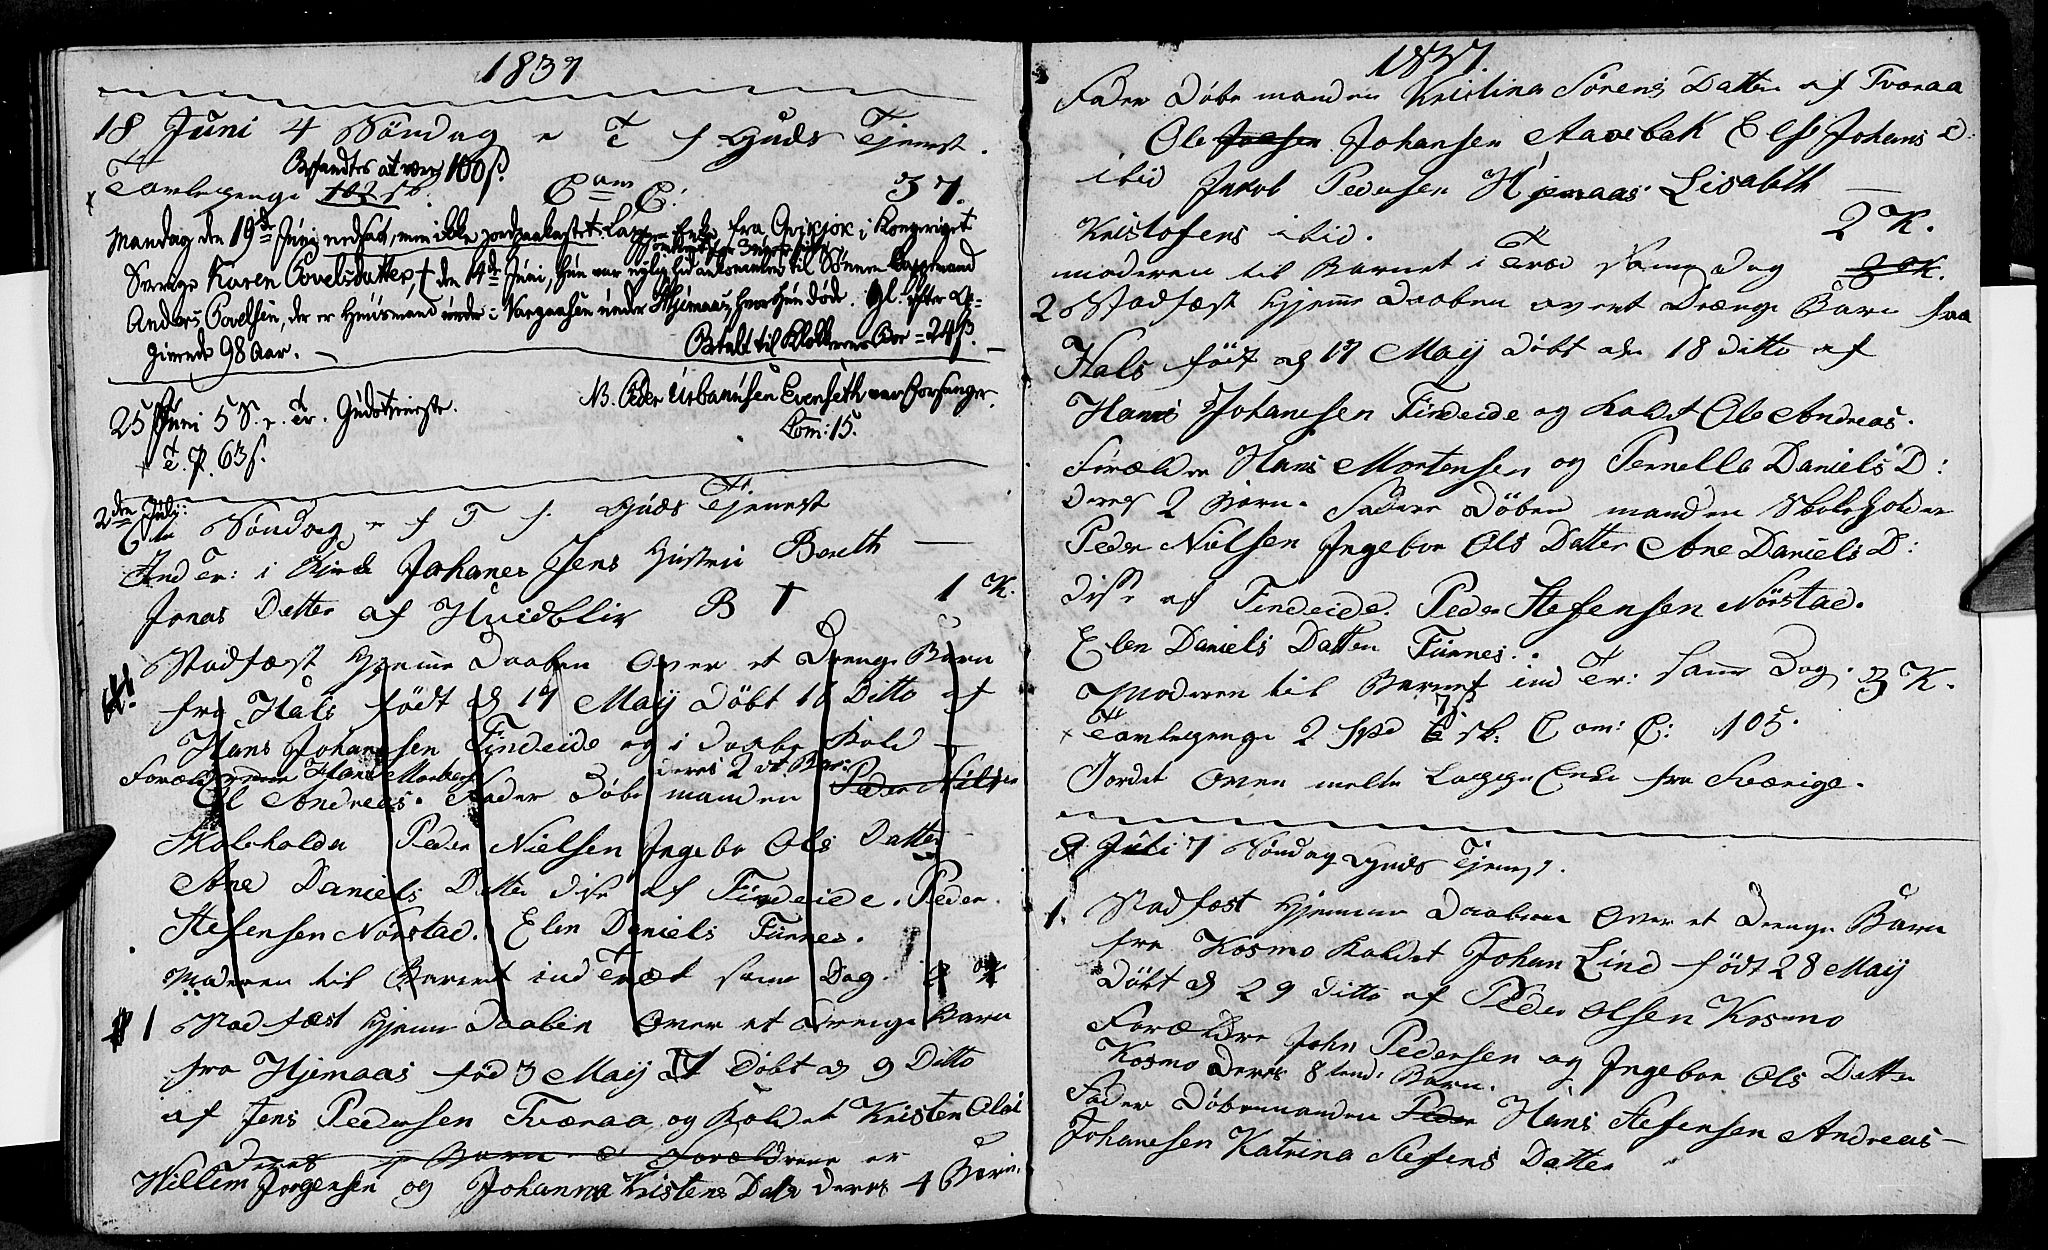 1837
18 Juni 4 Søndag e T f Guds Tjenest.
Befandtes at være 100 s.
Tavlepenge 102 sk. Com C: 37.
Mandag den 19de Juni nedsat, men ikke jordpaakastet Lappe Enke fra Qvikjok i Kongeriget
Sverige Karen Povelsdatter, † den 14de Juni, hun var nylig hid ankommen til Sönnen Lappmand
Anders Povelsen, der er Huusmand under Hjemaas, hvor hun døde. Gl: efter An-
givende 98 Aar. Betalt til Klokkeren = 24 s.
25 Juni 5 S. e. Tr. Gudstjeneste. NB. Peder Urbanusen Evenseth var Forsanger.
T. P. 63 s. Com: 15.
2den Juli:
6te Søndag e f T f. Guds Tjenest
Ind Tr: i Kirke Johanes Jens Hustru Bereth
Jonas Datter af Hvidblik B † 1 K.
Stadfæst Hjemme Daaben Over et Drenge Barn
fra Hals födt d 17 May Döbt 18 Ditto af
Hans Johanesen Findeide og i daabe Kold
Foræl Hans Mortensen deres 2 det Barn
Ol Andreas. Fader Döbe manden Peder Nilsen
Skoleholder Peder Nielsen Ingebor Ols Datter
Ane Daniels Datter disse af Findeide. Peder
Stefensen Nörstad. Elen Daniels Funnes.
Moderen til Barnet ind Træt samme Dag.
1 Stad fæst Hjemme Daaben Over et Drenge Barn
fra Hjemaas föd 3 May Döbt d 9 Ditto
af Jens Pedersen Tværaa og Koldet Kristen Olai
Deres Barn Forældrene er
Willem Jörgensen og Johanna Kristens Dater deres 4 Barn.
1837.
Fader Döbe manden Kristina Sörens Datter af Tværaa
Ole Joesen Johansen Aavebak Else Johans D.
ibid Jakob Pedersen Hjemaas Lisabeth
Kristofers ibid. 2 K.
moderen til Barnet i Træd Samme Dag 3 K.
2 Stadfæst Hjemme Daaben over et Drænge Barn fra
Hals födt d 17 May döbt den 18 ditto af
Hans Johanesen Findeide og Koldet Ole Andreas.
Forældre Hans Mortensen og Pernella Daniels D:
deres 2 Barn. Fadere Döben manden Skoleholder
Peder Nielsen Ingebor Ols Datter Ane Daniels D:
disse af Findeide. Peder Stefensen Nörstad.
Elen Daniels Datter Funnes.
Moderen til Barnet ind Tr: samme Dag. 3 K.
Tavlepenge 2 Spd 6 sk: Com: C: 105.
Jordet Oven melte Lappe Enke fra Sværige.
9 Juli 7 Søndag Guds Tjenest.
1. Stadfæst Hjemme Daaben Over et Drenge Barn
fra Kosmo Koldet Johan Lind født 28 May
Döbt d 29 ditto af Peder Olsen Kosmo
Forældre John Pedersen og Ingebor Ols Datter
Kosmo Deres 8 tende Barn.
Fader Döbemanden Peder Hans Stefensen Andreas
Johanesen Katrina Stefens Datter